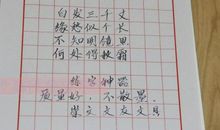 白发三千丈
缘愁似个长
不知明镜里
何处得秋霜
练字神器
质量好，不散墨
柴文文友文具